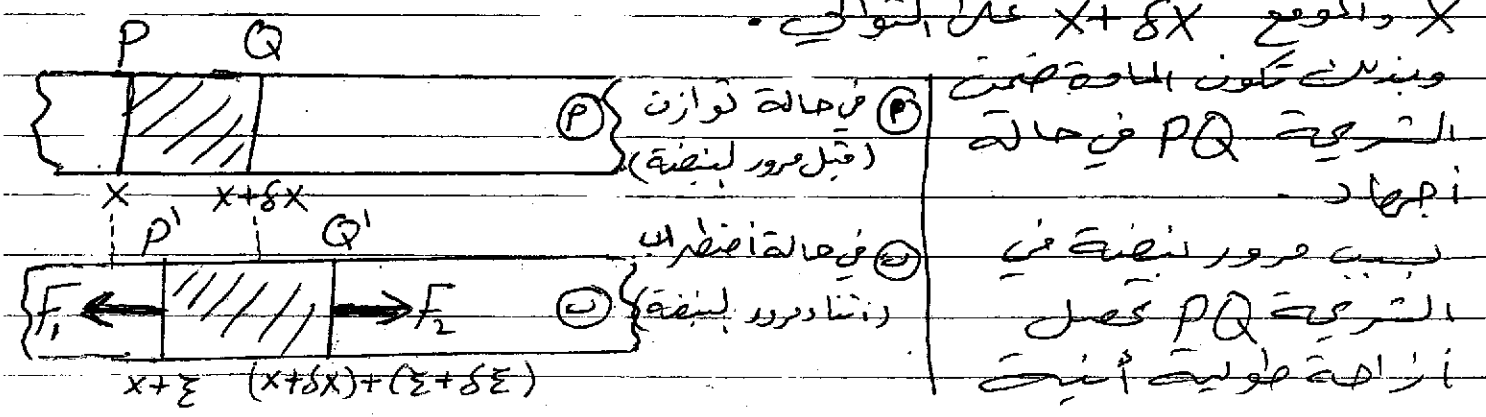 X والموقع X+δX على التوالي .
وبذلك تكون المادة ضمن
الشريحة PQ في حالة
أجهاد .
بسبب مرور نبضة في
الشريحة PQ تحصل
أزاحة طولية أنية
P Q
أ
أ في حالة توازن
(قبل مرور لنبضة)
X X+δX
P' Q'
ب في حالة أضطراب
(اثناء مرور لنبضة)
F₁ F₂
ب
X+ξ (X+δX)+(ξ+δξ)